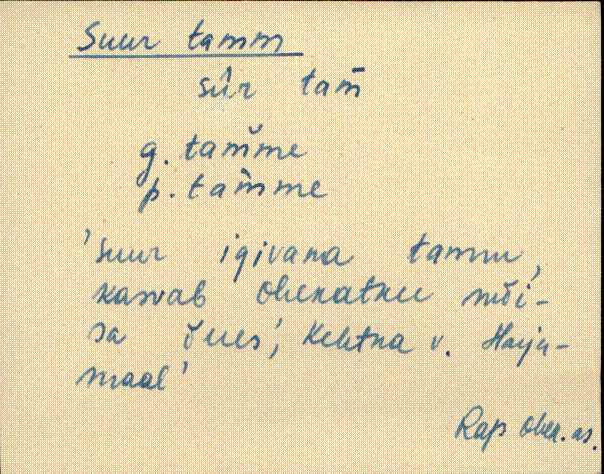 Suur tamm
sûr tam̄
g. tam̆me
p. tam̀me
'Suur igivana tamm,
kasvab Ohekatku mõi-
sa õues', Kehtna v. Harju-
maal'
Rap Ohek. as.